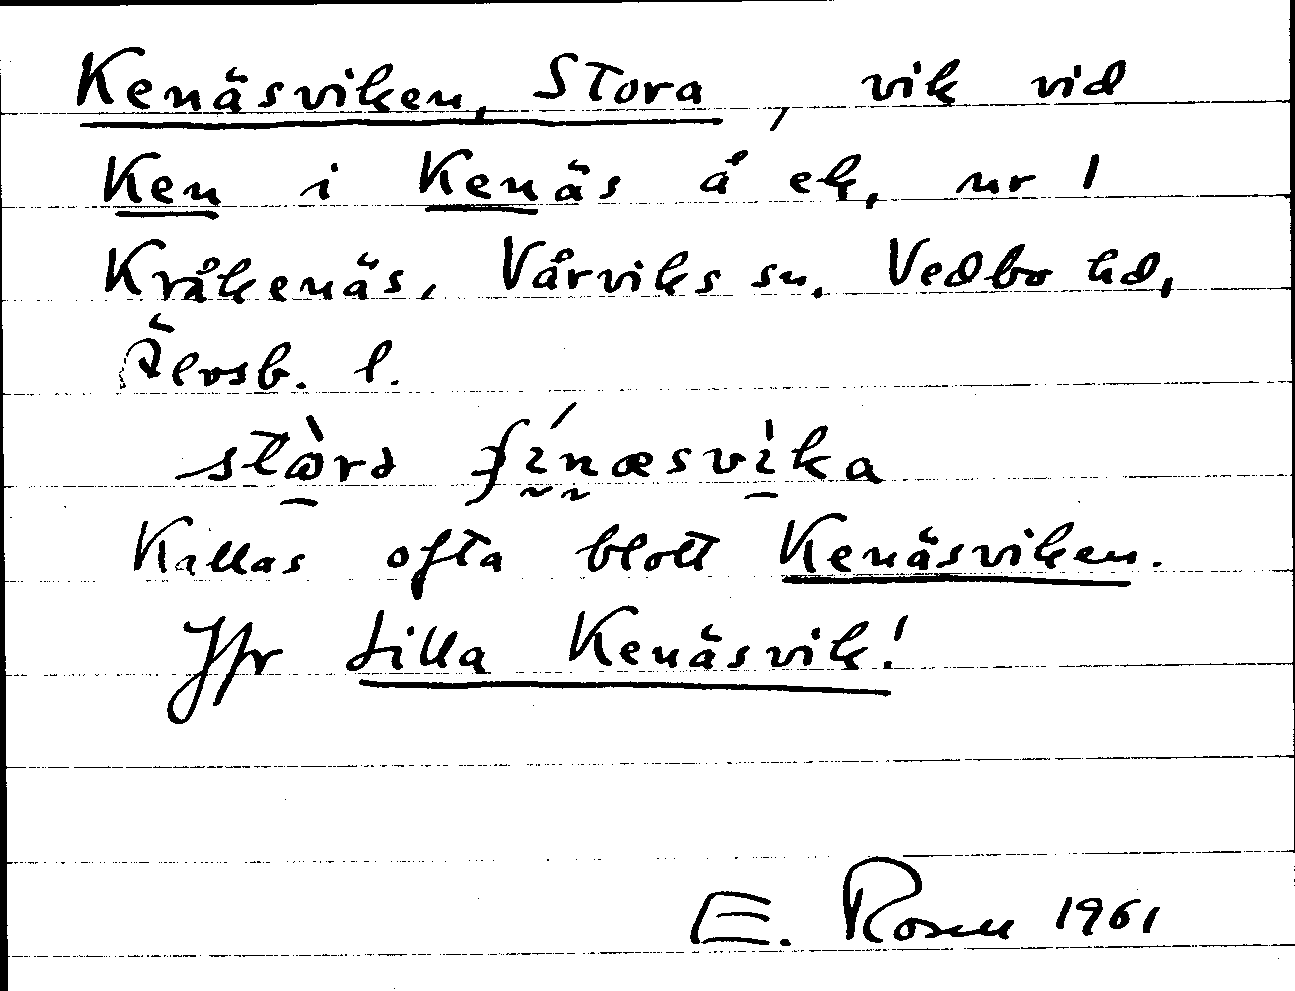 Kenäsviken, Stora, vik vid
Ken i Kenäs å ek. nr 1
Kråkenäs, Vårviks sn. Vedbo hd,
Älvsb. l.
Kallas ofta blott Kenäsviken.
Jfr Lilla Kenäsvik!
E. Rosén 1961